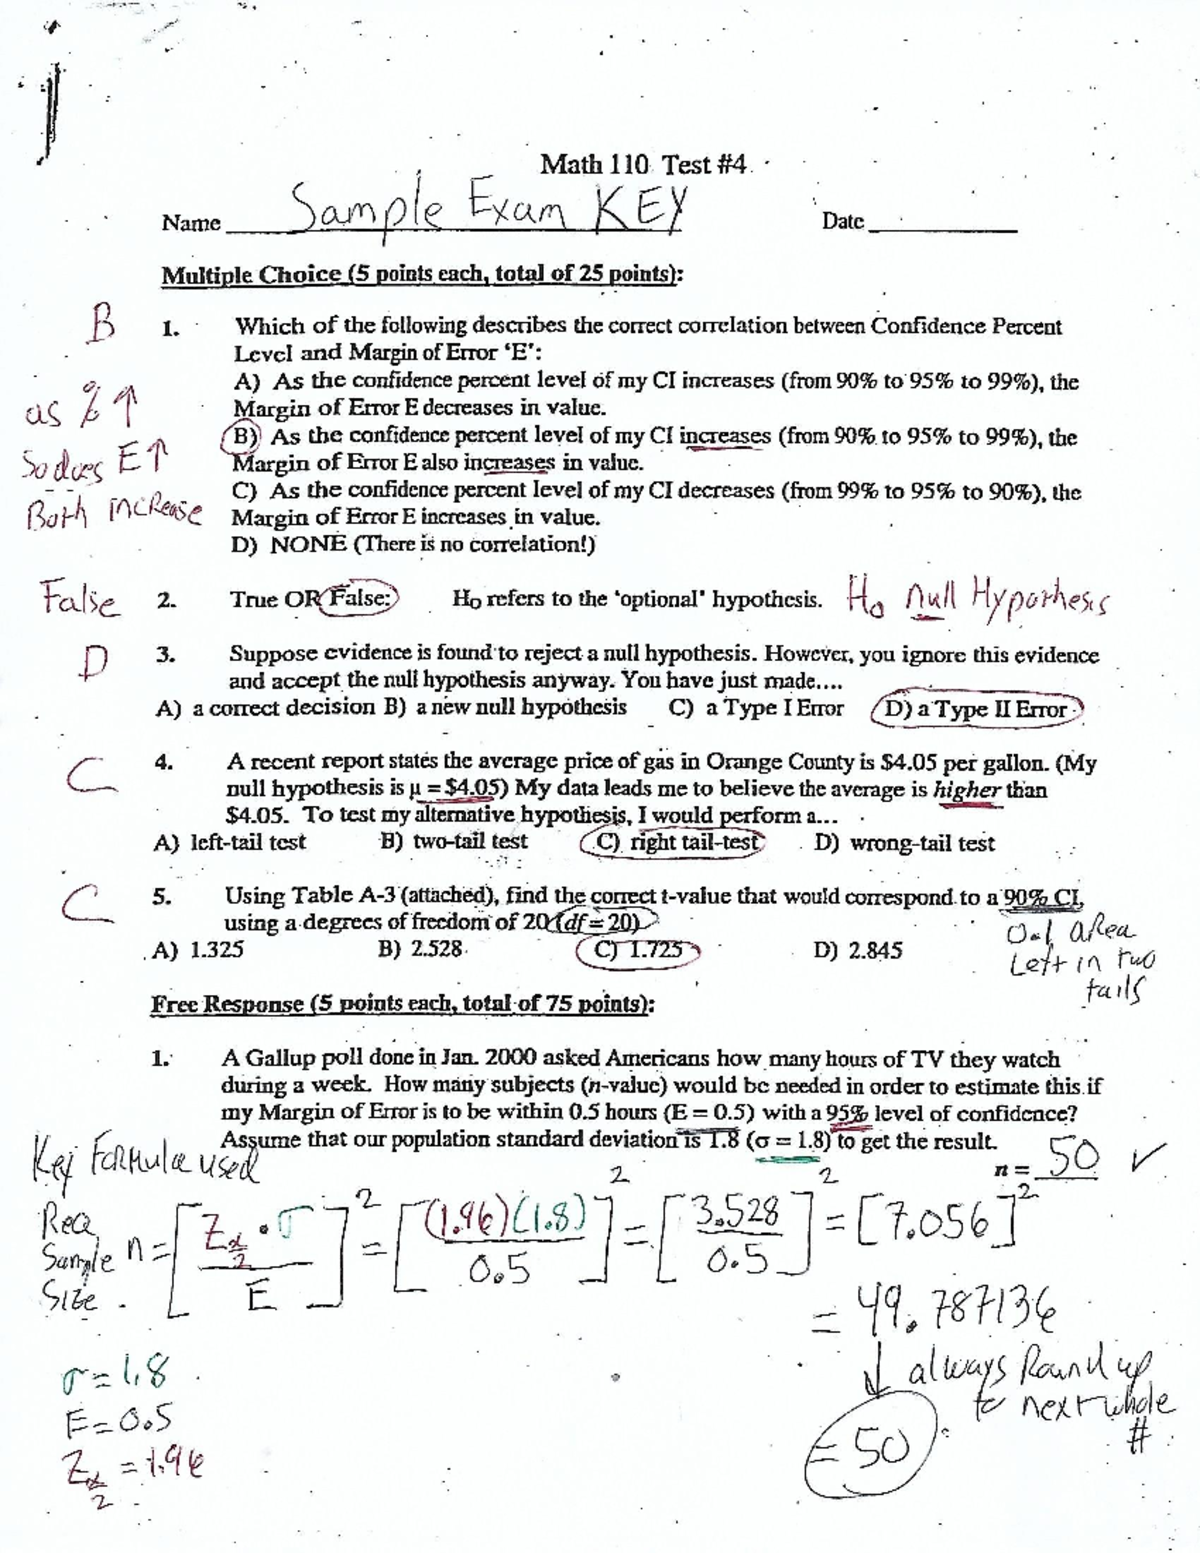 Math 110 Test #4
Name Sample Exam KEY Date
Multiple Choice (5 points each, total of 25 points):
B 1. Which of the following describes the correct correlation between Confidence Percent
Level and Margin of Error ‘E’:
A) As the confidence percent level of my CI increases (from 90% to 95% to 99%), the
as % ↑ Margin of Error E decreases in value.
B) As the confidence percent level of my CI increases (from 90% to 95% to 99%), the
So does E↑ Margin of Error E also increases in value.
C) As the confidence percent level of my CI decreases (from 99% to 95% to 90%), the
Both increase Margin of Error E increases in value.
D) NONE (There is no correlation!)
False 2. True OR False: H₀ refers to the ‘optional’ hypothesis. H₀ null Hypothesis
D 3. Suppose evidence is found to reject a null hypothesis. However, you ignore this evidence
and accept the null hypothesis anyway. You have just made....
A) a correct decision B) a new null hypothesis C) a Type I Error D) a Type II Error
C 4. A recent report states the average price of gas in Orange County is $4.05 per gallon. (My
null hypothesis is μ = $4.05) My data leads me to believe the average is higher than
$4.05. To test my alternative hypothesis, I would perform a...
A) left-tail test B) two-tail test C) right tail-test D) wrong-tail test
C 5. Using Table A-3 (attached), find the correct t-value that would correspond to a 90% CI,
using a degrees of freedom of 20 (df = 20)
A) 1.325 B) 2.528 C) 1.725 D) 2.845
0.1 area
Left in two
tails
Free Response (5 points each, total of 75 points):
1. A Gallup poll done in Jan. 2000 asked Americans how many hours of TV they watch
during a week. How many subjects (n-value) would be needed in order to estimate this if
my Margin of Error is to be within 0.5 hours (E = 0.5) with a 95% level of confidence?
Assume that our population standard deviation is 1.8 (σ = 1.8) to get the result.
n = 50 ✓
Key Formula used
Req Sample Size n = [Zα/2 · σ / E]² = [(1.96)(1.8) / 0.5]² = [3.528 / 0.5]² = [7.056]²
= 49.787136
↓ always Round up
to next whole
#
= 50
σ = 1.8
E = 0.5
Zα/2 = 1.96